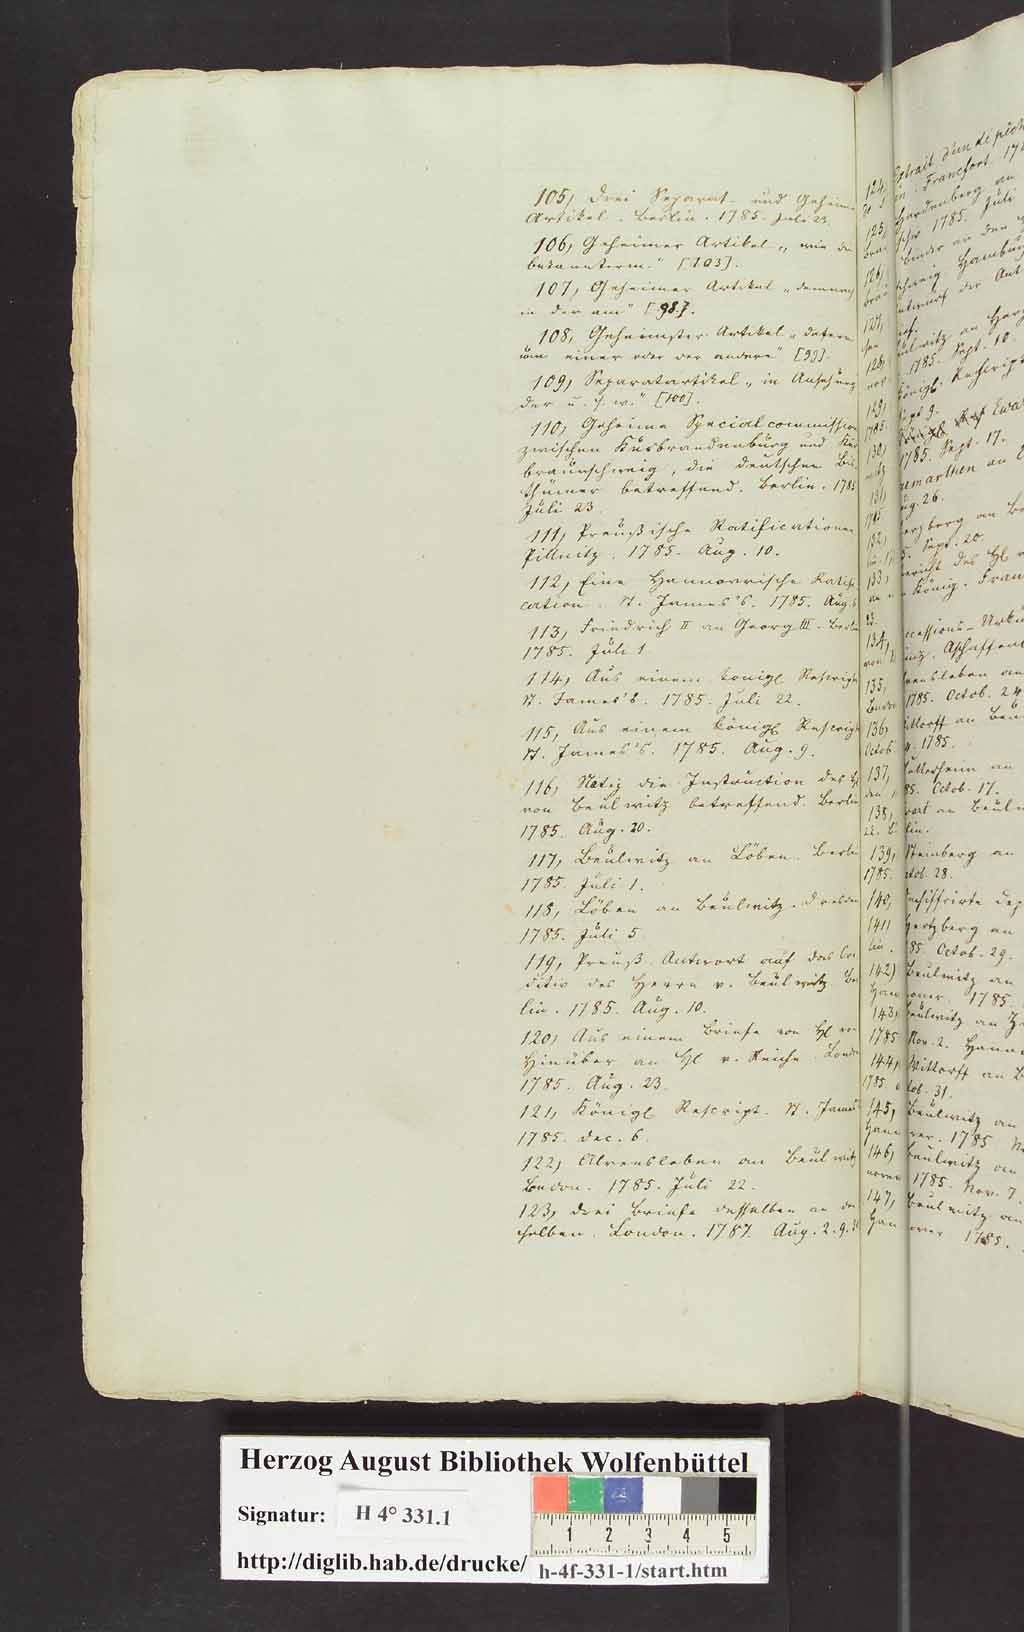 105, Drei Separat- und Geheime
Artikel. Berlin. 1785. Juli 23.
106, Geheimer Artikel „wie de
bekanntem." [103].
107, Geheimer Artikel „demnach
in der am" [98].
108, Geheimster Artikel „dafern
von einer oder der andere" [99].
109, Separatartikel „in Ansehung
der u. s. w." [100].
110, Geheime Specialcommission
zwischen Kurbrandenburg und Kur
braunschweig, die deutschen Bis
thümer betreffend. Berlin. 1785
Juli 23.
111, Preußische Ratificationen
Pillnitz. 1785. Aug. 10.
112, Eine Hannovrische Ratifi
cation. St. James's. 1785. Aug.
113, Friedrich II an Georg III. Berlin
1785. Juli 1.
114, Aus einem königl Rescript
St. James's. 1785. Juli 22.
115, Aus einem königl Rescript
St. James's. 1785. Aug. 9.
116, Notiz die Instruction des
von Beulwitz betreffend. Berlin
1785. Aug. 20.
117, Beulwitz an Löben. Berlin
1785. Juli 1.
118, Löben an Beulwitz. Dresden
1785. Juli 5.
119, Preuß. Antwort auf das Cre
ditiv des Herrn v. Beulwitz Ber
lin. 1785. Aug. 10.
120, Aus einem Briefe von H von
Hinüber an H v. Reiche. London
1785. Aug. 23.
121, Königl Rescript. St. James
1785. Dec. 6.
122, Alvensleben an Beulwitz
London. 1785. Juli 22.
123, Drei Briefe desselben an den
selben. London. 1787. Aug. 2. 9.
124, Extrait d'un dépêch
Francfort. 17
125, Hardenberg an
1785. Juli
126, Linder an den
Hamburg
127, Entwurf der Ant
Beulwitz an Herz
128, 1785. Sept. 10.
129, Königl. Rescript
1785. Sept 9.
130, Ewa
1785. Sept. 17.
131, Carmarthen an
1785 Aug. 26.
132, Herzberg an Be
Sept. 20.
133, Bericht des H
an König. Fran
23.
134, Accessions-Urku
von Mainz. Aschaffen
135, Alvensleben an
London 1785. Octob. 24
136, Wittorff an Beu
Octob 4. 1785.
137, an
85. Octob. 17.
138, an Beulw
139, Steinberg an
1785. Octob. 28.
140, Dechiffrirte Dep
141, Hertzberg an
lin. 85. Octob. 29.
142) Beulwitz an
Hannover. 1785.
143, Beulwitz an
1785 Nov. 2. Hanno
144, Wittorff an B
1785. Octob. 31.
145, Beulwitz an
Hannover. 1785 No
146, Beulwitz an
nover 1785. Nov. 7.
147, Beulwitz an
Hannover 1785.
Herzog August Bibliothek Wolfenbüttel
Signatur: H 4° 331.1
1 2 3 4 5
http://diglib.hab.de/drucke/ h-4f-331-1/start.htm